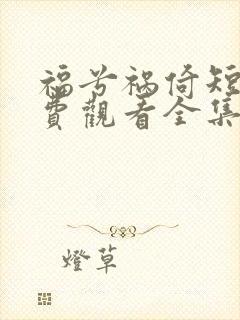 福兮祸倚短
費觀看全集
燈草